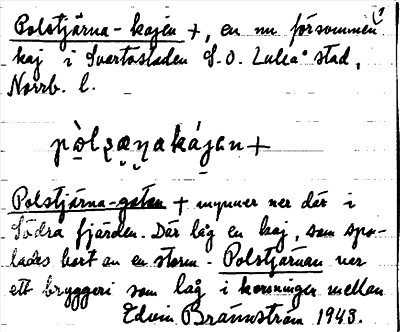 Polstjärna-kajen +, en nu försvunnen
kaj i Svartöstaden S.O. Luleå stad,
Norrb. l.
pòlʂæɳakájən +
Polstjärna-gatan + mynner ner där i
Södra fjärden. Där låg en kaj, som spo-
lades bort av en storm. Polstjärnan var
ett bryggeri som låg i korsningen mellan
Edvin Brännström 1943.